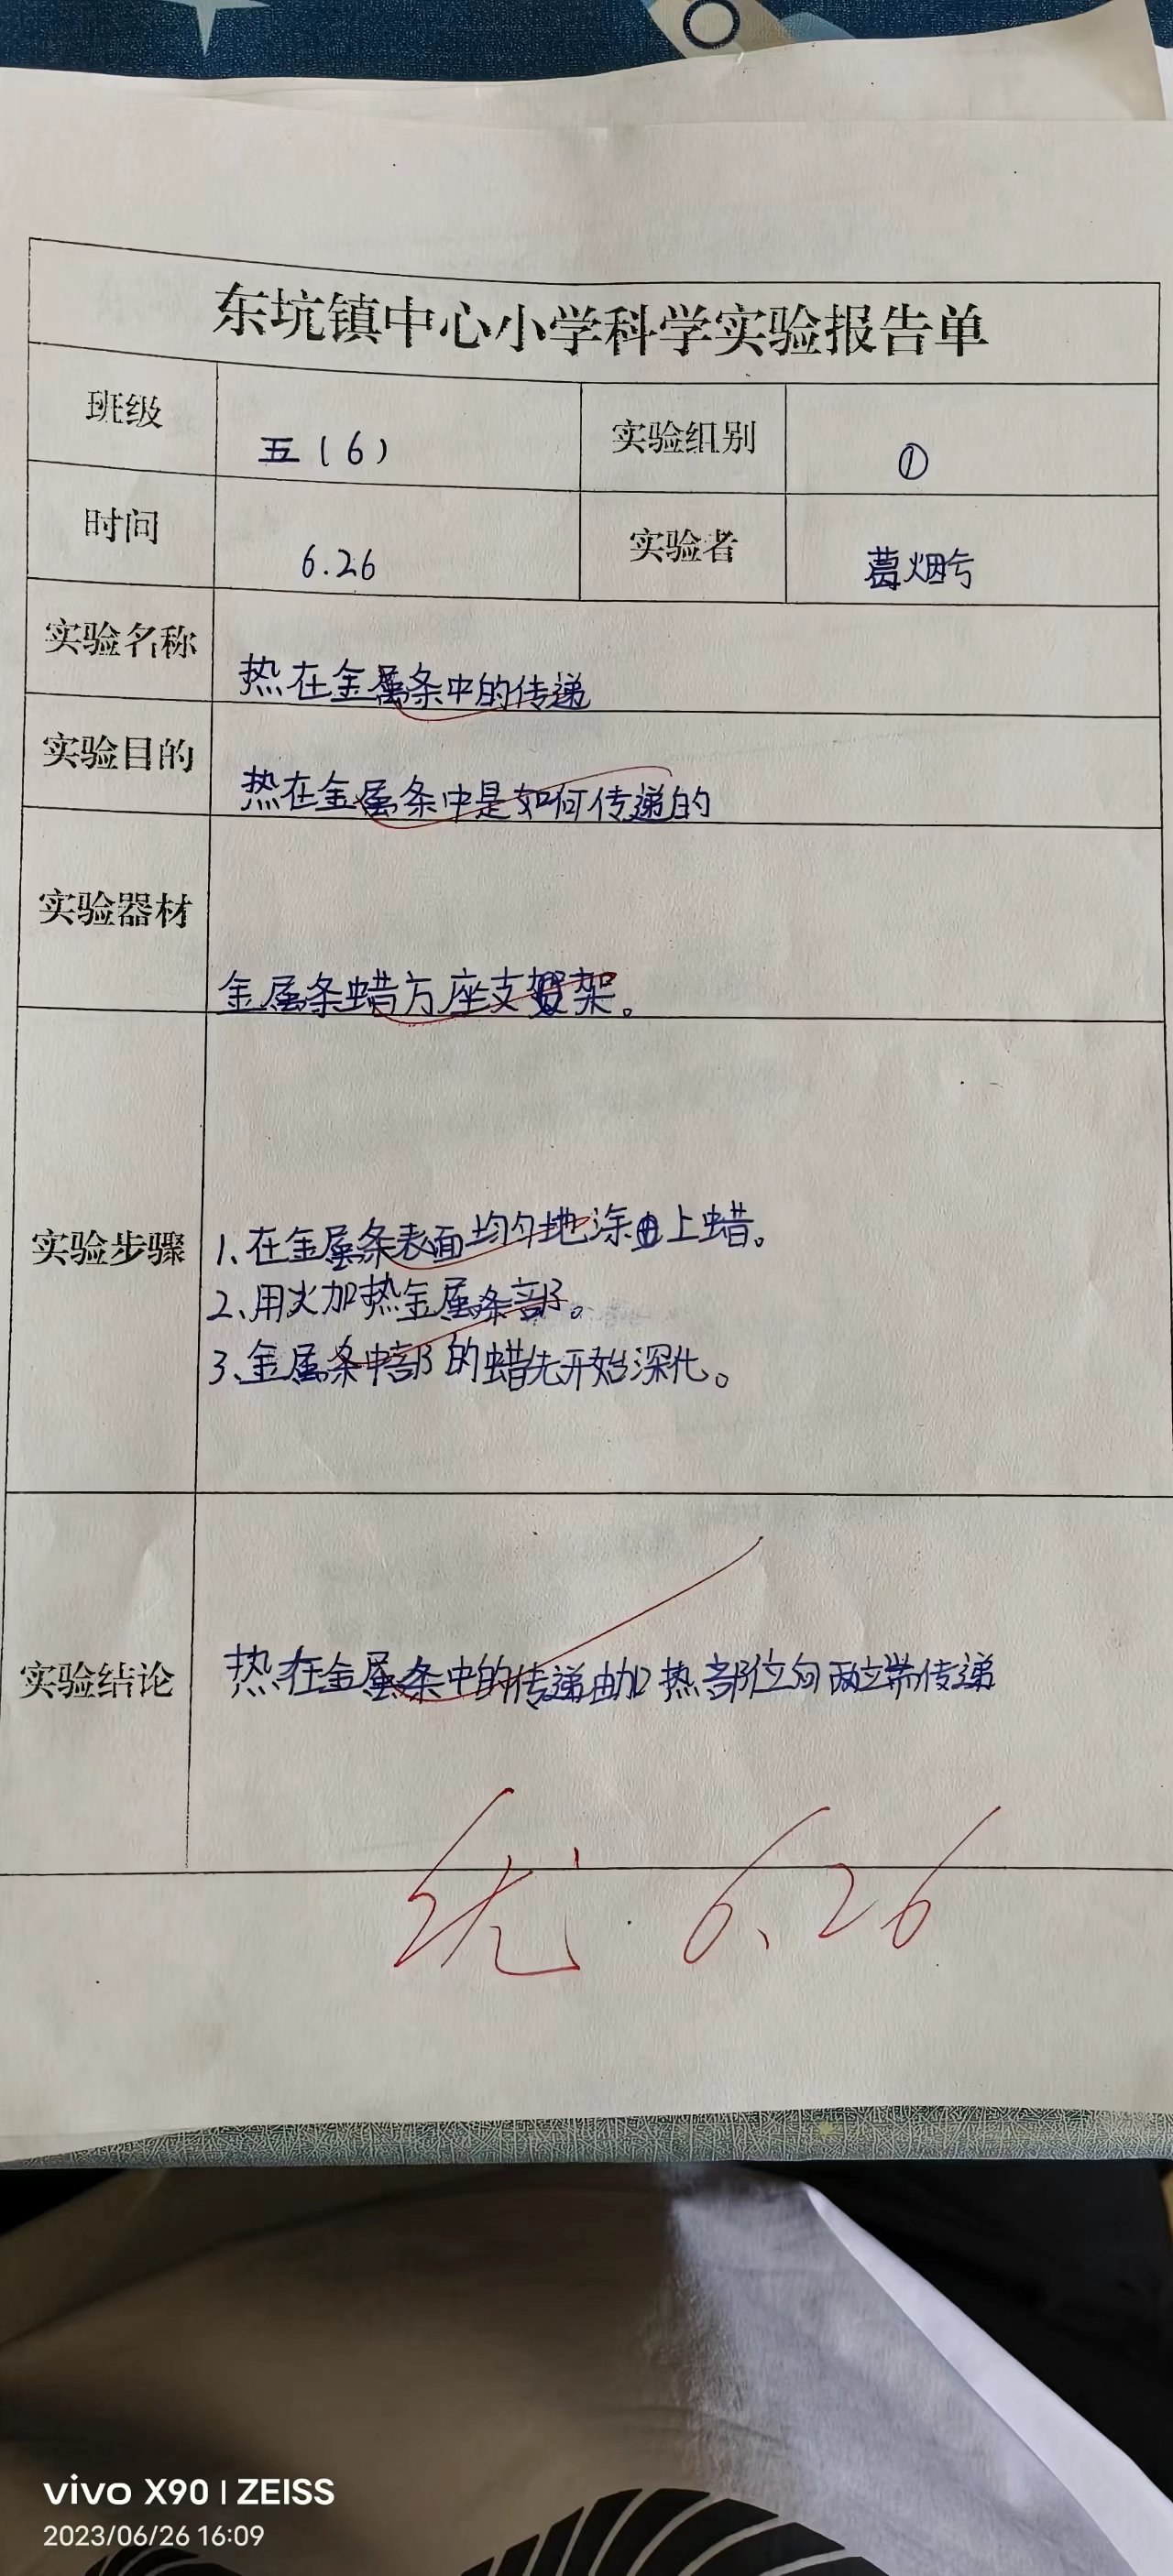 东坑镇中心小学科学实验报告单
班级 五(6) 实验组别 ①
时间 6.26 实验者 葛烟兮
实验名称 热在金属条中的传递
实验目的 热在金属条中是如何传递的
实验器材 金属条蜡方座支架。
实验步骤 1、在金属条表面均匀地涂上蜡。
2、用火加热金属条部。
3、金属条中部的蜡先开始深化。
实验结论 热在金属条中的传递由加热部位向两端传递
优 6.26
vivo X90 | ZEISS
2023/06/26 16:09